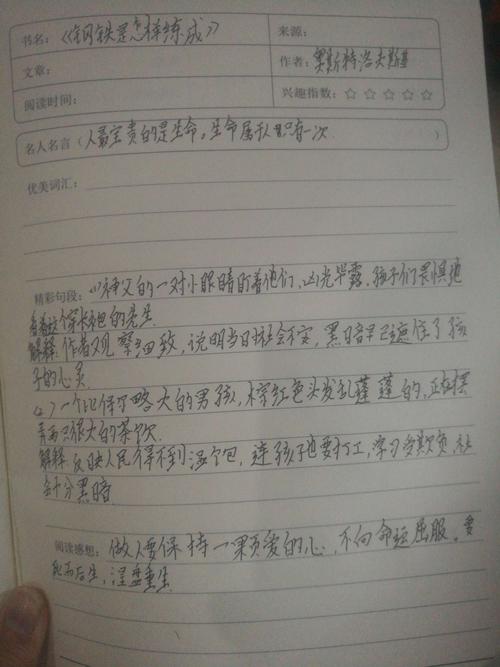 书名：《钢铁是怎样练成》
来源：
文章：
作者：奥斯特洛夫斯基
阅读时间：
兴趣指数：☆ ☆ ☆ ☆ ☆
名人名言（人最宝贵的是生命，生命属于人只有一次）
优美词汇：
精彩句段：(1)神父的一对小眼睛盯着他们，凶光毕露，孩子们畏惧地
看着这个穿长袍的先生
解释 作者观察细致，说明当日社会不安，黑暗早已遮住了孩
子的心灵
(2)一个比保尔略大的男孩，棕红色头发乱蓬蓬的，正在摆
弄两只很大的茶炊
解释 反映人民得不到温饱，连孩子也要打工，
会十分黑暗
阅读感想：做人要保持一颗爱的心，不向命运屈服，要
死而后生，涅盘重生